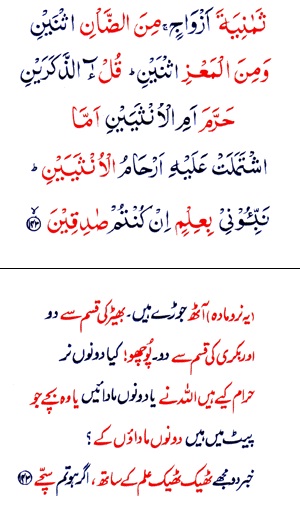 ثَمٰنِيَةَ اَزْوَاجٍ ۚ مِنَ الضَّاْنِ اثْنَيْنِ
وَمِنَ الْمَعْزِ اثْنَيْنِ ؕ قُلْ ءٰٓالذَّكَرَيْنِ
حَرَّمَ اَمِ الْاُنْثَيَيْنِ اَمَّا
اشْتَمَلَتْ عَلَيْهِ اَرْحَامُ الْاُنْثَيَيْنِ ؕ
نَبِّـُٔوْنِيْ بِعِلْمٍ اِنْ كُنْتُمْ صٰدِقِيْنَ ﴿۱۴۳﴾
(یہ نر و مادہ) آٹھ جوڑے ہیں۔ بھیڑ کی قسم سے دو
اور بکری کی قسم سے دو۔ پوچھو! کیا دونوں نر
حرام کیے ہیں اللہ نے یا دونوں مادائیں یا وہ بچے جو
پیٹ میں ہیں دونوں ماداؤں کے؟
خبر دو مجھے ٹھیک ٹھیک علم کے ساتھ، اگر ہو تم سچّے ﴿۱۴۳﴾